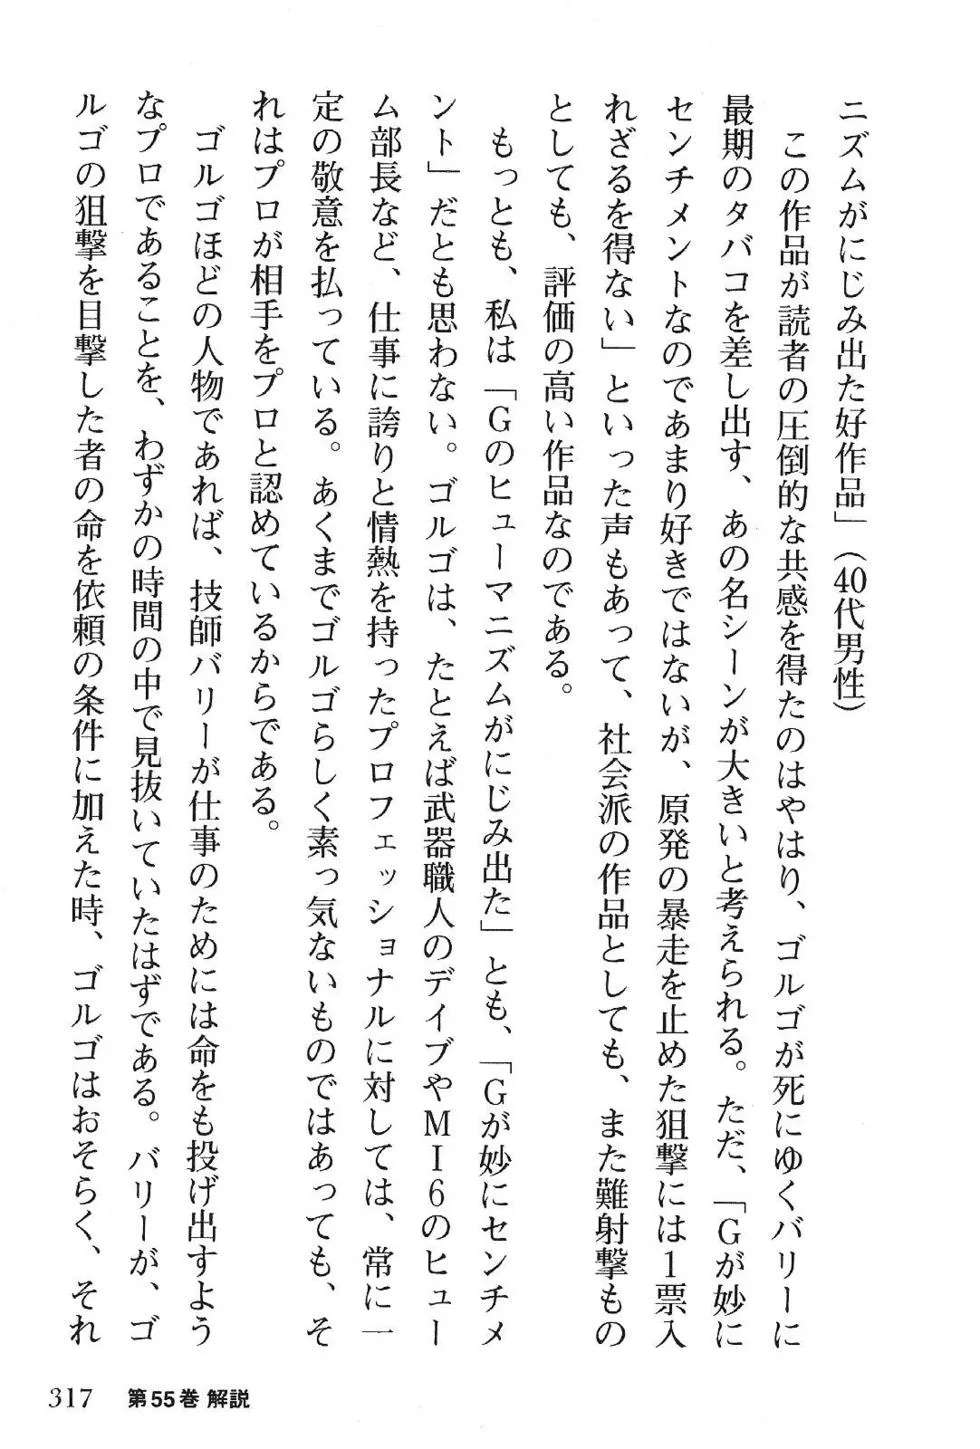 ニズムがにじみ出た好作品」（40代男性）
この作品が読者の圧倒的な共感を得たのはやはり、ゴルゴが死にゆくバリーに
最期のタバコを差し出す、あの名シーンが大きいと考えられる。ただ、「Gが妙に
センチメントなのであまり好きではないが、原発の暴走を止めた狙撃には1票入
れざるを得ない」といった声もあって、社会派の作品としても、また難射撃もの
としても、評価の高い作品なのである。
もっとも、私は「Gのヒューマニズムがにじみ出た」とも、「Gが妙にセンチメ
ント」だとも思わない。ゴルゴは、たとえば武器職人のデイブやMI6のヒュー
ム部長など、仕事に誇りと情熱を持ったプロフェッショナルに対しては、常に一
定の敬意を払っている。あくまでゴルゴらしく素っ気ないものではあっても、そ
れはプロが相手をプロと認めているからである。
ゴルゴほどの人物であれば、技師バリーが仕事のためには命をも投げ出すよう
なプロであることを、わずかの時間の中で見抜いていたはずである。バリーが、ゴ
ルゴの狙撃を目撃した者の命を依頼の条件に加えた時、ゴルゴはおそらく、それ
317 第55巻 解説